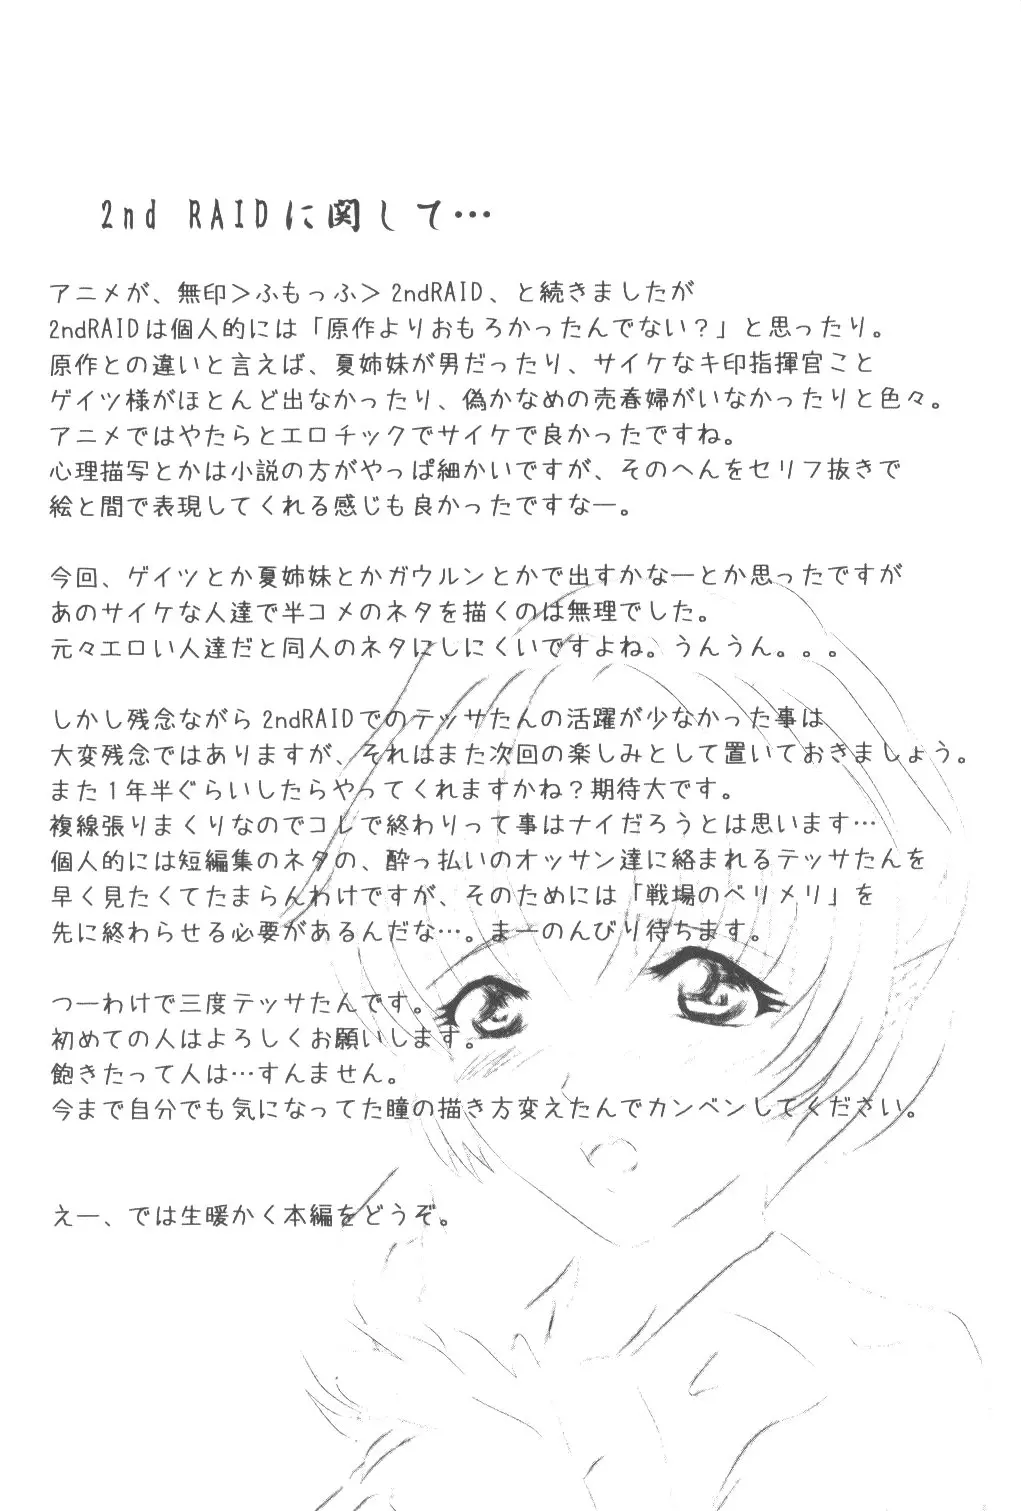 2nd RAIDに関して…
アニメが、無印＞ふもっふ＞2ndRAID、と続きましたが
2ndRAIDは個人的には「原作よりおもろかったんでない？」と思ったり。
原作との違いと言えば、夏姉妹が男だったり、サイケなキ印指揮官こと
ゲイツ様がほとんど出なかったり、偽かなめの売春婦がいなかったりと色々。
アニメではやたらとエロチックでサイケで良かったですね。
心理描写とかは小説の方がやっぱ細かいですが、そのへんをセリフ抜きで
絵と間で表現してくれる感じも良かったですなー。
今回、ゲイツとか夏姉妹とかガウルンとかで出すかなーとか思ったですが
あのサイケな人達で半コメのネタを描くのは無理でした。
元々エロい人達だと同人のネタにしにくいですよね。うんうん。。。
しかし残念ながら2ndRAIDでのテッサたんの活躍が少なかった事は
大変残念ではありますが、それはまた次回の楽しみとして置いておきましょう。
また1年半ぐらいしたらやってくれますかね？期待大です。
複線張りまくりなのでコレで終わりって事はナイだろうとは思います…
個人的には短編集のネタの、酔っ払いのオッサン達に絡まれるテッサたんを
早く見たくてたまらんわけですが、そのためには「戦場のベリメリ」を
先に終わらせる必要があるんだな…。まーのんびり待ちます。
つーわけで三度テッサたんです。
初めての人はよろしくお願いします。
飽きたって人は…すんません。
今まで自分でも気になってた瞳の描き方変えたんでカンベンしてください。
えー、では生暖かく本編をどうぞ。